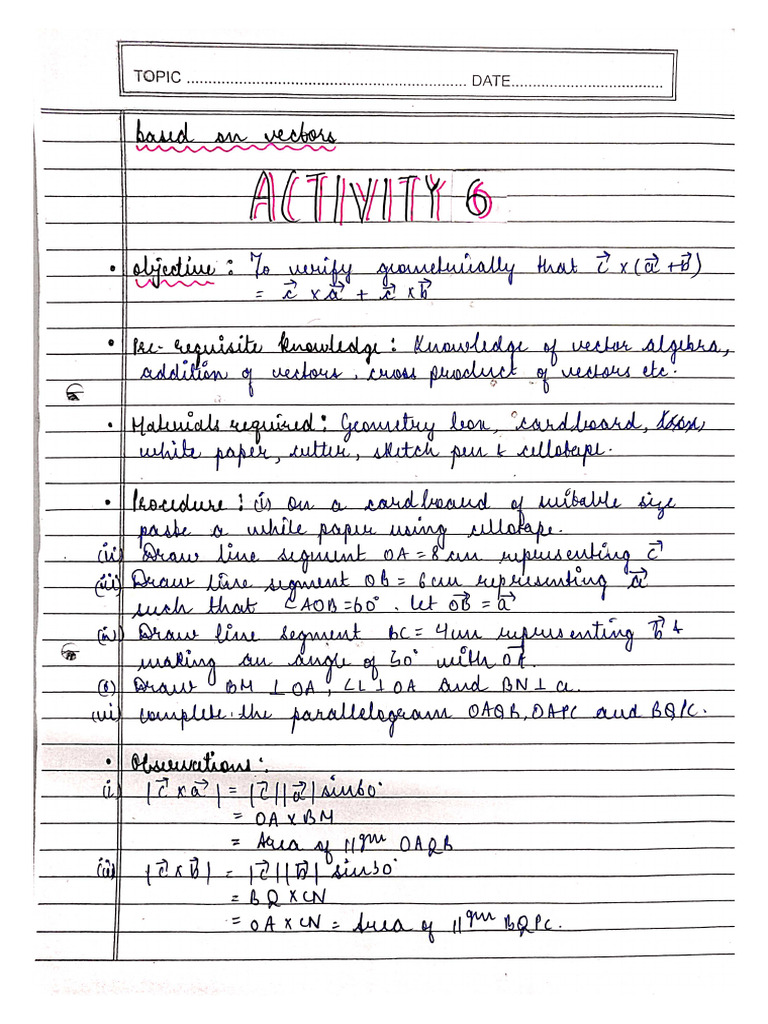 TOPIC ........................................ DATE........................
based on vectors
ACTIVITY 6
• Objective : To verify geometrically that c⃗ × (a⃗ + b⃗)
= c⃗ × a⃗ + c⃗ × b⃗
• Pre-requisite knowledge : Knowledge of vector algebra,
addition of vectors, cross product of vectors etc.
• Materials required : Geometry box, cardboard,
white paper, cutter, sketch pen & cellotape.
• Procedure : (i) on a cardboard of suitable size
paste a white paper using cellotape.
(ii) Draw line segment OA = 8 cm representing c⃗
(iii) Draw line segment OB = 6 cm representing a⃗
such that ∠AOB = 60°. let OB⃗ = a⃗
(iv) Draw line segment BC = 4 cm representing b⃗ &
making an angle of 30° with OA⃗.
(v) Draw BM ⊥ OA, CL ⊥ OA and BN ⊥ CL.
(vi) complete the parallelogram OAQB, OAPC and BQPC.
• Observations :
(i) |c⃗ × a⃗| = |c⃗||a⃗| sin60°
= OA × BM
= Area of ||gm OAQB
(ii) |c⃗ × b⃗| = |c⃗||b⃗| sin30°
= BQ × CN
= OA × CN = Area of ||gm BQPC.